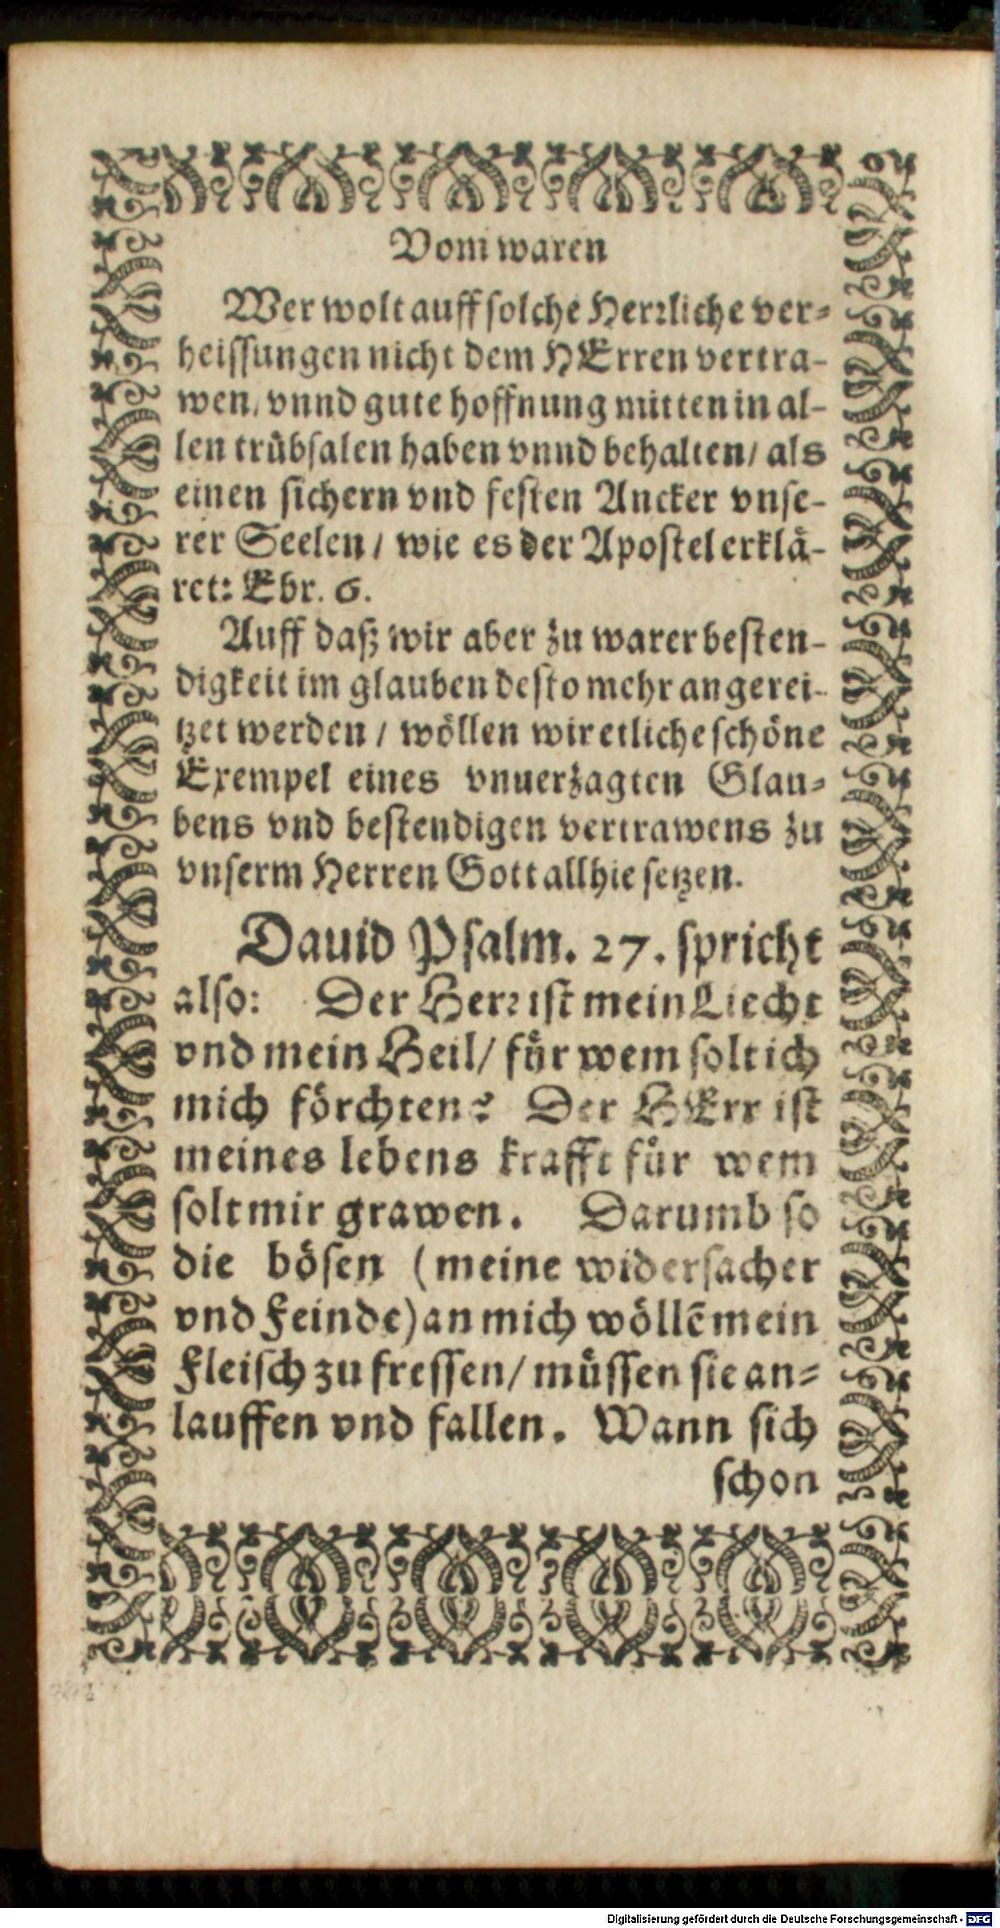 Vom waren
Wer wolt auff solche Herrliche ver-
heissungen nicht dem HErren vertra-
wen, vnnd gute hoffnung mitten in al-
len trübsalen haben vnnd behalten/ als
einen sichern vnd festen Ancker vnse-
rer Seelen/ wie es der Apostel erklä-
ret: Ebr. 6.
Auff daß wir aber zu warer besten-
digkeit im glauben desto mehr angerei-
tzet werden/ wöllen wir etliche schöne
Exempel eines vnuerzagten Glau-
bens vnd bestendigen vertrawens zu
vnserm Herren Gott allhie setzen.
Dauid Psalm. 27. spricht
also: Der Herr ist mein Liecht
vnd mein Heil/ für wem solt ich
mich förchten? Der HErr ist
meines lebens krafft für wem
solt mir grawen. Darumb so
die bösen (meine widersacher
vnd Feinde) an mich wöllẽ mein
Fleisch zu fressen/ müssen sie an-
lauffen vnd fallen. Wann sich
schon
Digitalisierung gefördert durch die Deutsche Forschungsgemeinschaft - DFG